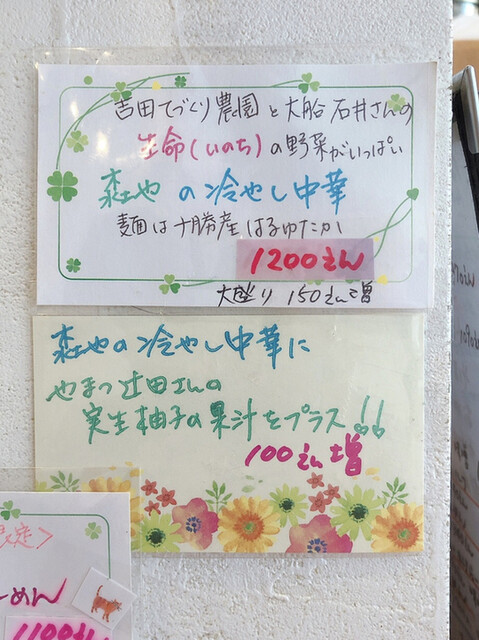 吉田てづくり農園と大船石井さんの
生命(いのち)の野菜がいっぱい
森也の冷やし中華
麺は十勝産はるゆたか
1200えん
大盛り 150えん増
森也の冷やし中華に
やまつ辻田さんの
実生柚子の果汁をプラス!!
100えん増
限定>
ーめん
1100えん